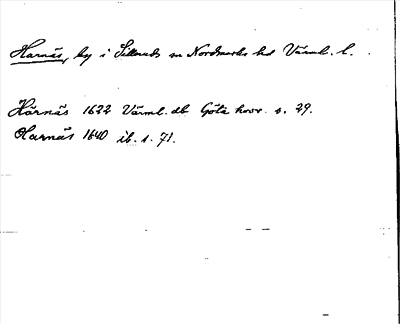 Harnäs, by i Silleruds sn Nordmarks hd Värml. l.
Härnäs 1622 Värml. db Göta hovr. s. 29.
Harnäs 1640 ib. s. 71.